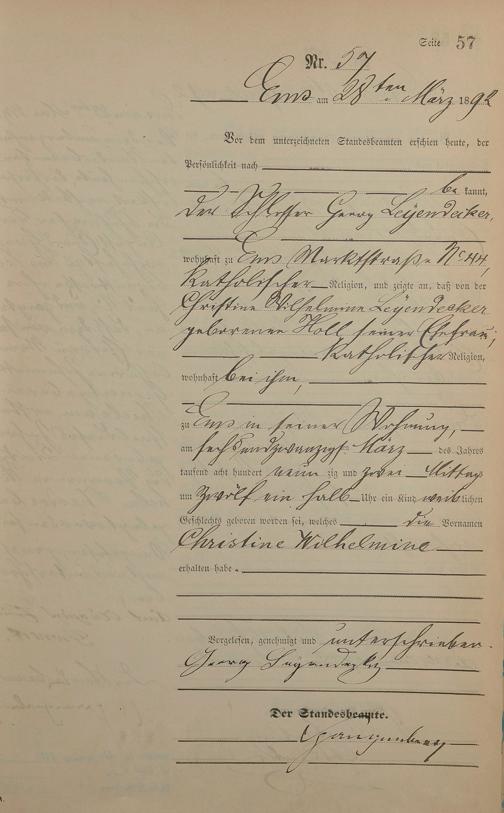 Seite 57
Nr. 57
Ems am 28ten März 1892
Vor dem unterzeichneten Standesbeamten erschien heute, der
Persönlichkeit nach
be kannt,
der Schlosser Georg Leyendecker,
wohnhaft zu Ems Marktstraße No 44,
katholischer Religion, und zeigte an, daß von der
Christine Wilhelmine Leyendecker
geborenen Noll seiner Ehefrau,
katholischer Religion,
wohnhaft bei ihm,
zu Ems in seiner Wohnung,
am sechsundzwanzigst März des Jahres
tausend acht hundert neun zig und zwei Mittag
um zwölf ein halb Uhr ein Kind weib lichen
Geschlechts geboren worden sei, welches die Vornamen
Christine Wilhelmine
erhalten habe.
Vorgelesen, genehmigt und unterschrieben.
Georg Leyendecker
Der Standesbeamte.